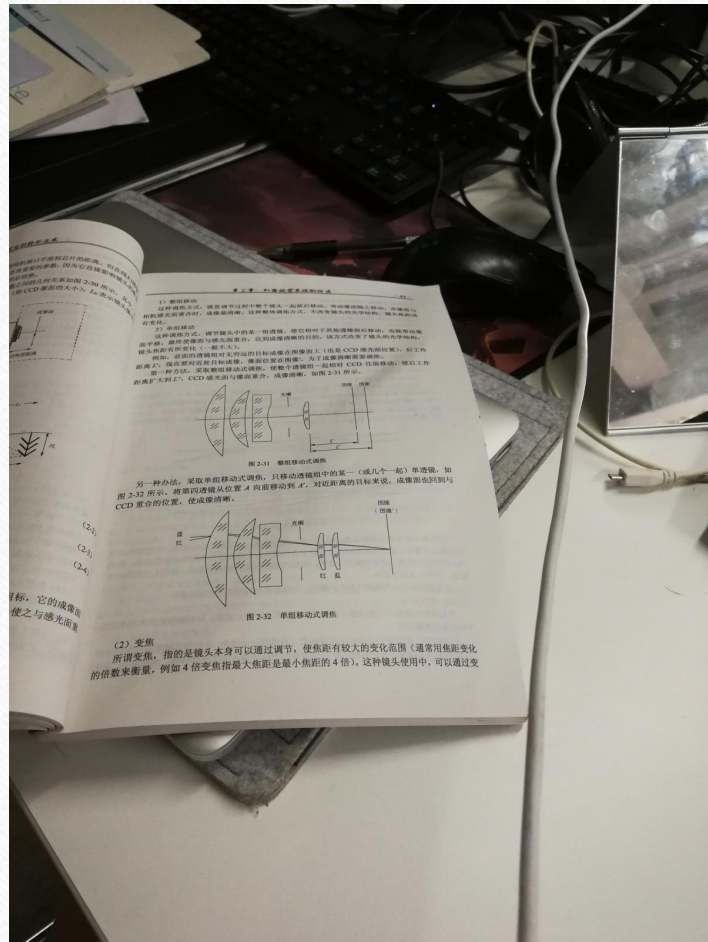 第二章 机器视觉系统的构成
1) 整组移动
这种调焦方式，就是调节过程中整个镜头一起前后移动，带动像面随之移动，当像面与
相机感光面重合时，成像最清晰。这种整体调焦方式，不改变镜头的光学结构，镜头焦距没
有变化。
2) 单组移动
这种调焦方式，调节镜头中的某一组透镜，使它相对于其他透镜前后移动，也能带动像
面平移，最终使像面与感光面重合，达到成像清晰的目的。该方式改变了镜头的光学结构，
镜头焦距有所变化（一般不大）。
例如，前面的透镜组对无穷远的目标成像在图像面上（也是 CCD 感光面位置），后工作
距离 L'，现在要对近处目标成像，像面位置在图像'，为了成像清晰需要调焦。
第一种方法，采取整组移动式调焦，使整个透镜组一起相对 CCD 往前移动，使后工作
距离扩大到 L''，CCD 感光面与像面重合，成像清晰，如图 2-31 所示。
光阑
图像 图像'
L'
L''
图 2-31 整组移动式调焦
另一种办法，采取单组移动式调焦，只移动透镜组中的某一（或几个一起）单透镜，如
图 2-32 所示。将第四透镜从位置 A 向前移动到 A'，对近距离的目标来说，成像面也回到与
CCD 重合的位置，使成像清晰。
图像
（图像'）
光阑
蓝
红
红 蓝
图 2-32 单组移动式调焦
(2) 变焦
所谓变焦，指的是镜头本身可以通过调节，使焦距有较大的变化范围（通常用焦距变化
的倍数来衡量，例如 4 倍变焦指最大焦距是最小焦距的 4 倍）。这种镜头使用中，可以通过变
(2-2)
(2-3)
(2-4)
目标，它的成像面
使之与感光面重